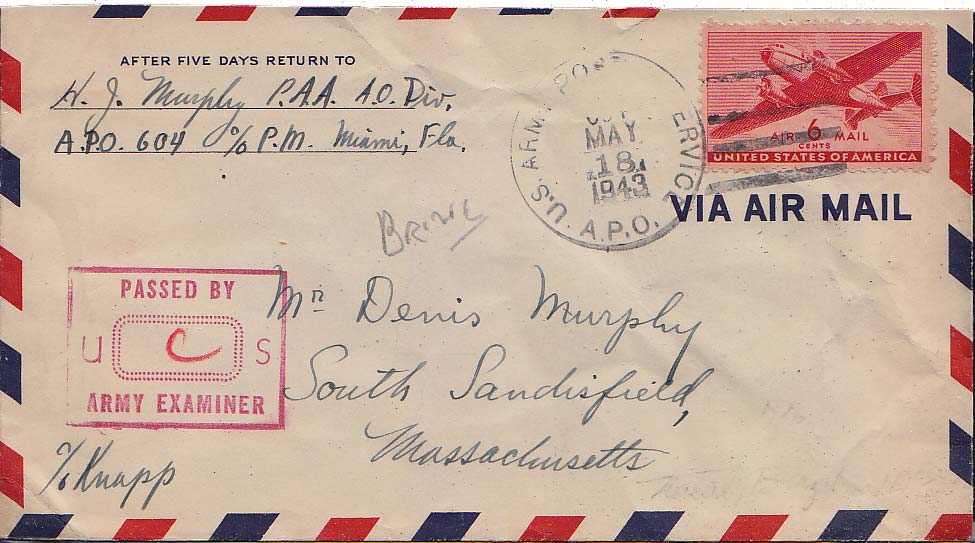 AFTER FIVE DAYS RETURN TO
H. J. Murphy P.A.A. A.O. Div.
A.P.O. 604 c/o P.M. Miami, Fla.
U.S. ARMY POS ERVICE
MAY
18
1943
A.P.O.
AIR 6 MAIL
CENTS
UNITED STATES OF AMERICA
VIA AIR MAIL
PASSED BY
U C S
ARMY EXAMINER
Mr Denis Murphy
South Sandisfield,
Massachusetts
c/o Knapp